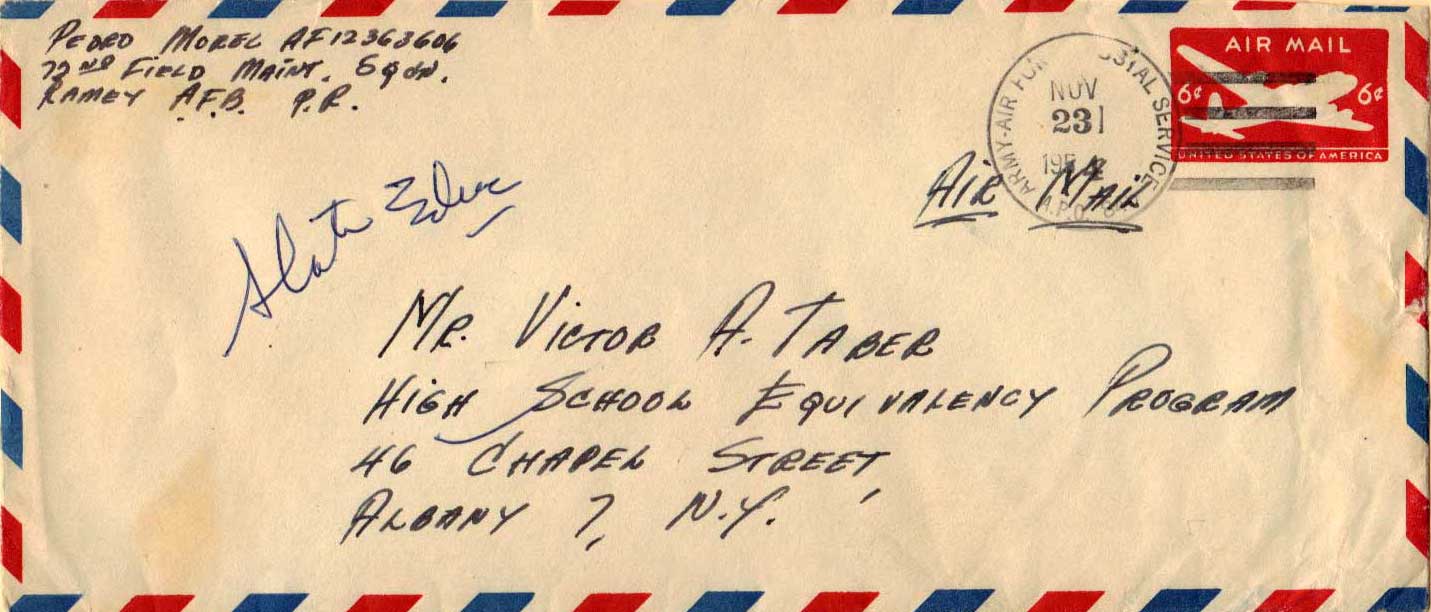 PEDRO MOREL AF12363606
72ND FIELD MAINT. SQDN.
RAMEY A.F.B. P.R.
AIR MAIL
6¢ 6¢
UNITED STATES OF AMERICA
ARMY-AIR POSTAL SERVICE
NOV
23
195
A.P.O.
AIR MAIL
State Educ
MR. VICTOR A. TABER
HIGH SCHOOL EQUIVALENCY PROGRAM
46 CHAPEL STREET,
ALBANY 7, N.Y.